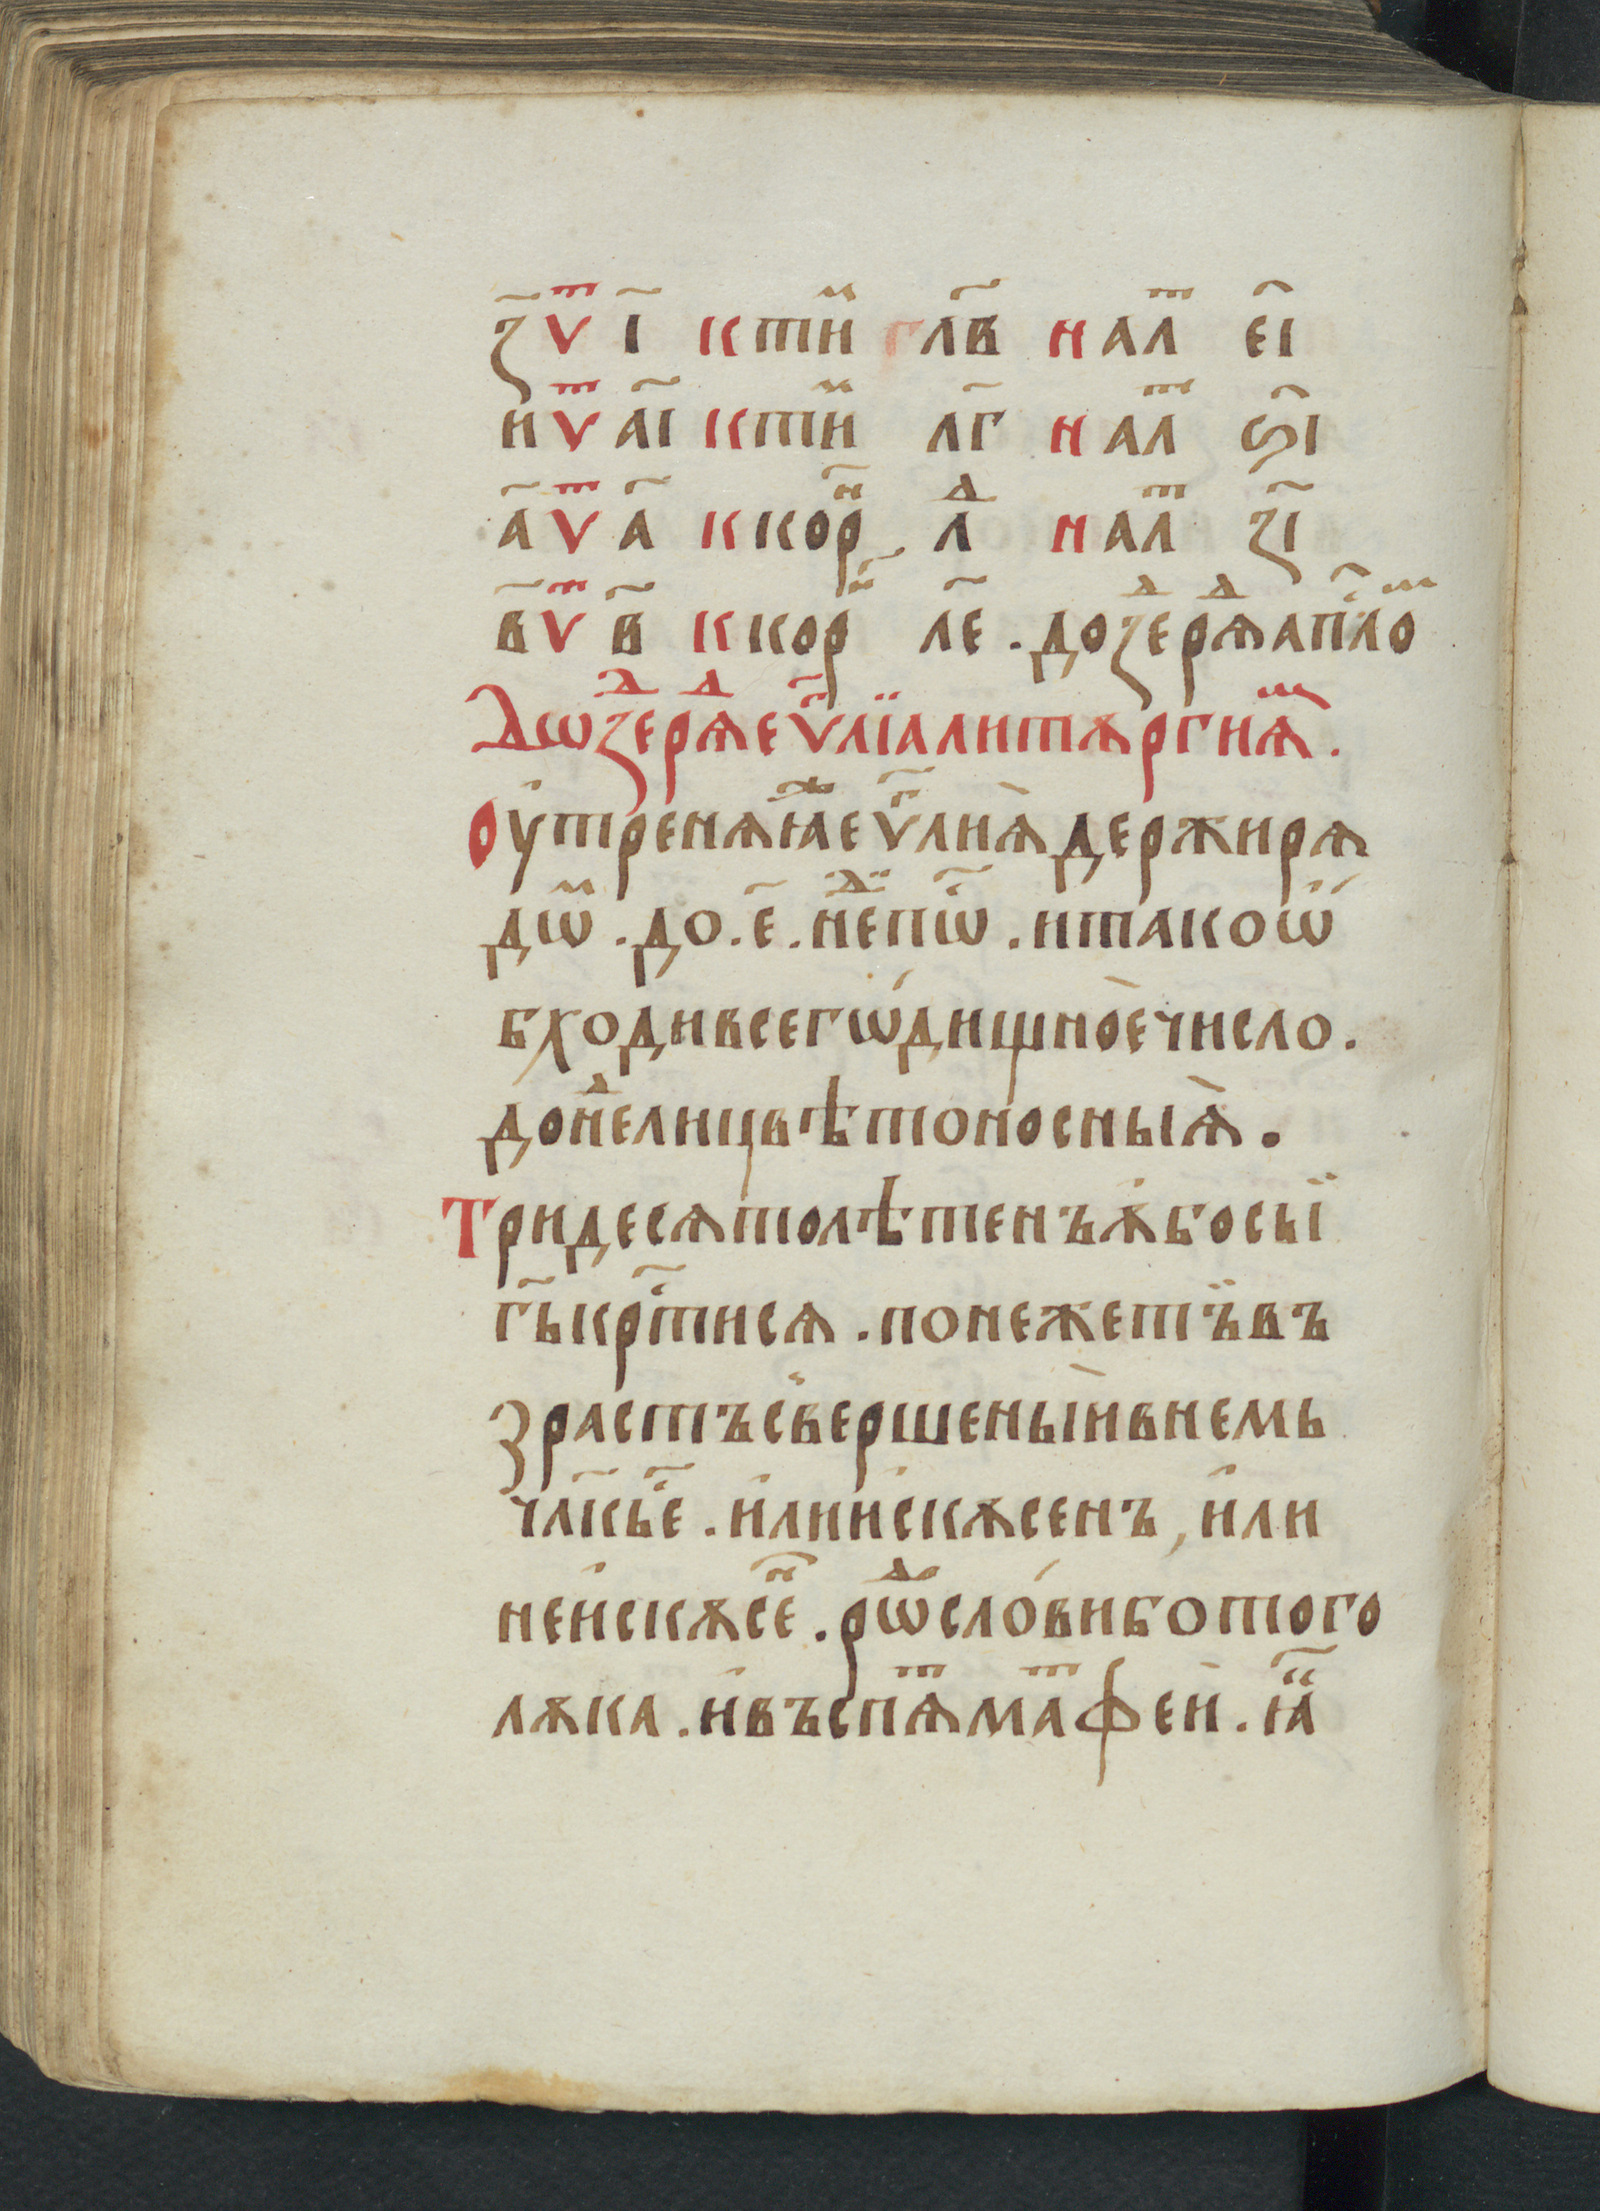 з҃ ѵⷮ і҃ к тиⷨ гл҃в н алⷮ е҃і
и ѵⷮ а҃і к тиⷨ л҃г н алⷮ ѕ҃і
а҃ ѵⷮ а҃ к кориⷩ҇ лⷣ н алⷮ з҃і
в҃ ѵⷮ в҃ к кориⷩ҇ л҃е . доⷣзерⷣѧапⷭ҇лоⷨ
Дѡⷣзерⷣѧеѵⷢ҇лїалитѫргиѧⷨ .
Оу҆тренѧꙗⷤеѵⷢ҇лиѧ̀держирѧ
дѡⷨ . до . е҃ . неⷣ҇пѡⷭ҇ . итакоѡ҆
бходивсегѡ́дищно̀ечисло .
донеⷣлицвѣтоносныѧ̀ .
Тридесѧтолѣтенъѫ҆босӹ
гⷭ҇ькрⷭ҇тисѧ . понежетъ̈въ
зрастъсвершены̀ивнемь
чл҃кьⷭ҇е . и҆лииⷭскѫсенъ , и҆ли
неи҆скѫсеⷩ҇ . рѡⷣсло́виботого
лѫка . и҆въспѧⷮмаⷮфеи̇ . ꙗⷭ҇